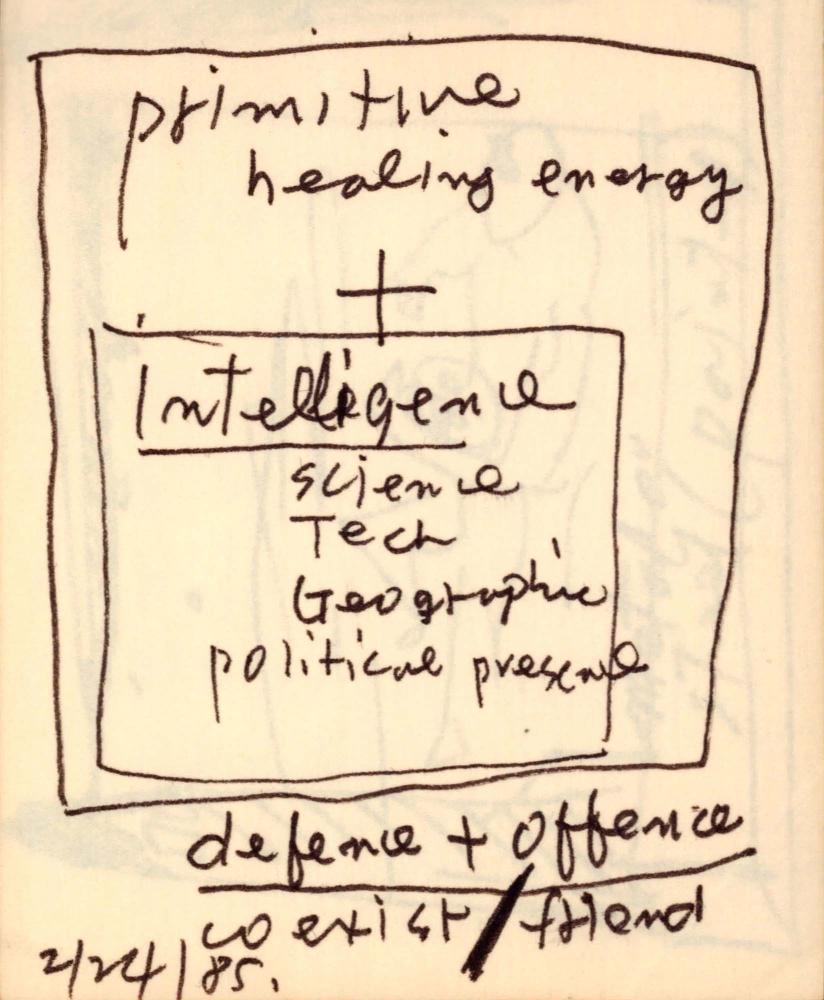 primitive
healing energy
+
Intelligence
science
Tech
Geographic
political presence
defence + offence
coexist / friend
2/24/85.